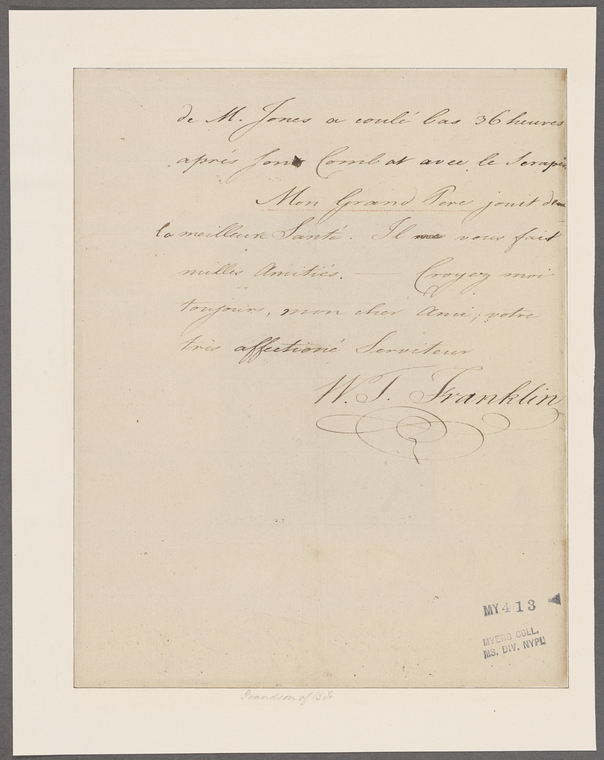 de M. Jones a coulé bas 36 heures
après son Combat avec le Serapis
Mon Grand Pere jouit de
la meilleure Santé. Il vous fait
milles Amitiés. — Croyez moi
toujours, mon cher Ami, votre
très affectioné Serviteur
W. T. Franklin
MY 413
MYERS COLL.
MS. DIV. NYPL
Grandson of B.F.